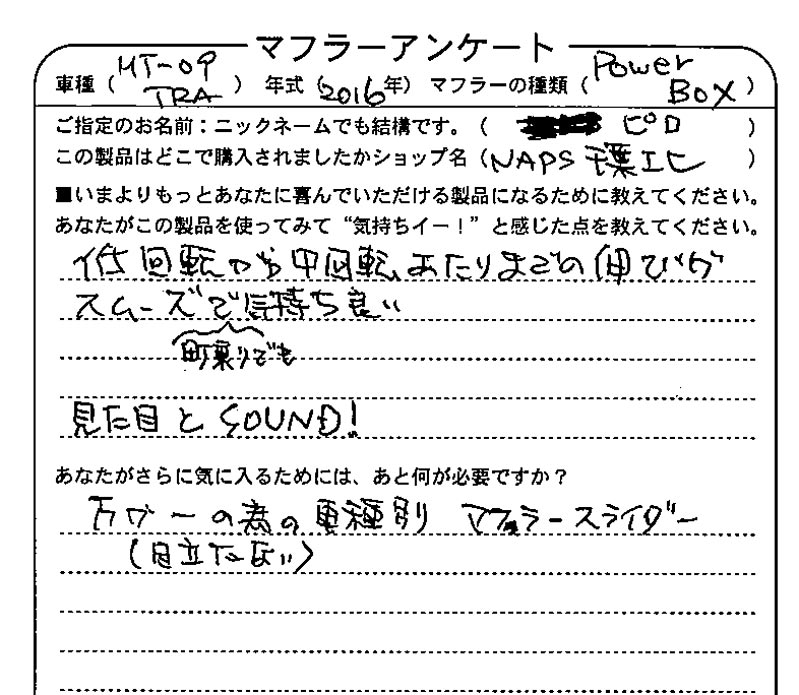 マフラーアンケート
車種（MT-09 TRA） 年式（2016年） マフラーの種類（Power BOX）
ご指定のお名前：ニックネームでも結構です。（ ピロ ）
この製品はどこで購入されましたかショップ名（NAPS 千葉 ）
■いまよりもっとあなたに喜んでいただける製品になるために教えてください。
あなたがこの製品を使ってみて“気持ちイー！”と感じた点を教えてください。
低回転から中回転あたりまでの伸びが
スムーズで気持ち良い
町乗りでも
見た目と SOUND!
あなたがさらに気に入るためには、あと何が必要ですか？
万が一の為の車種別 マフラースライダー
（目立たない）